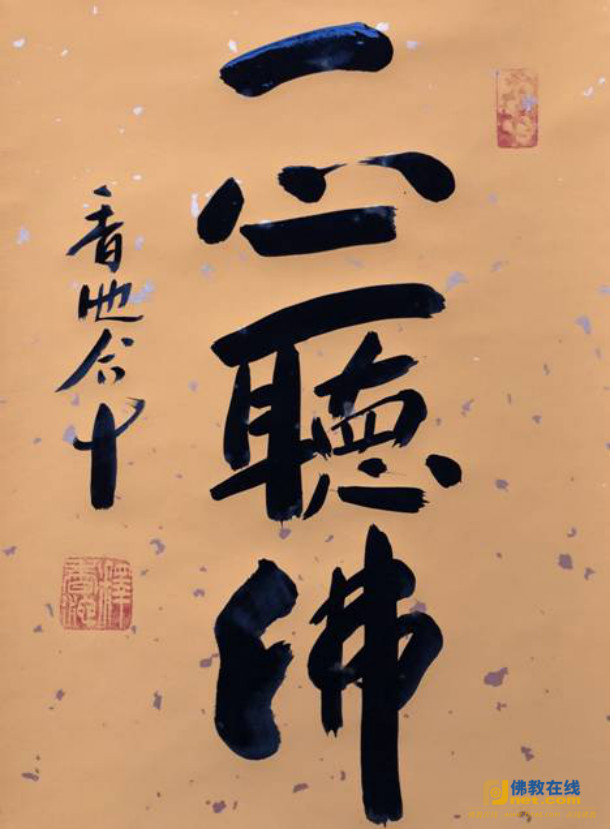 一心聽佛
香池合十
釋香池
佛教在线
Fjnet.com